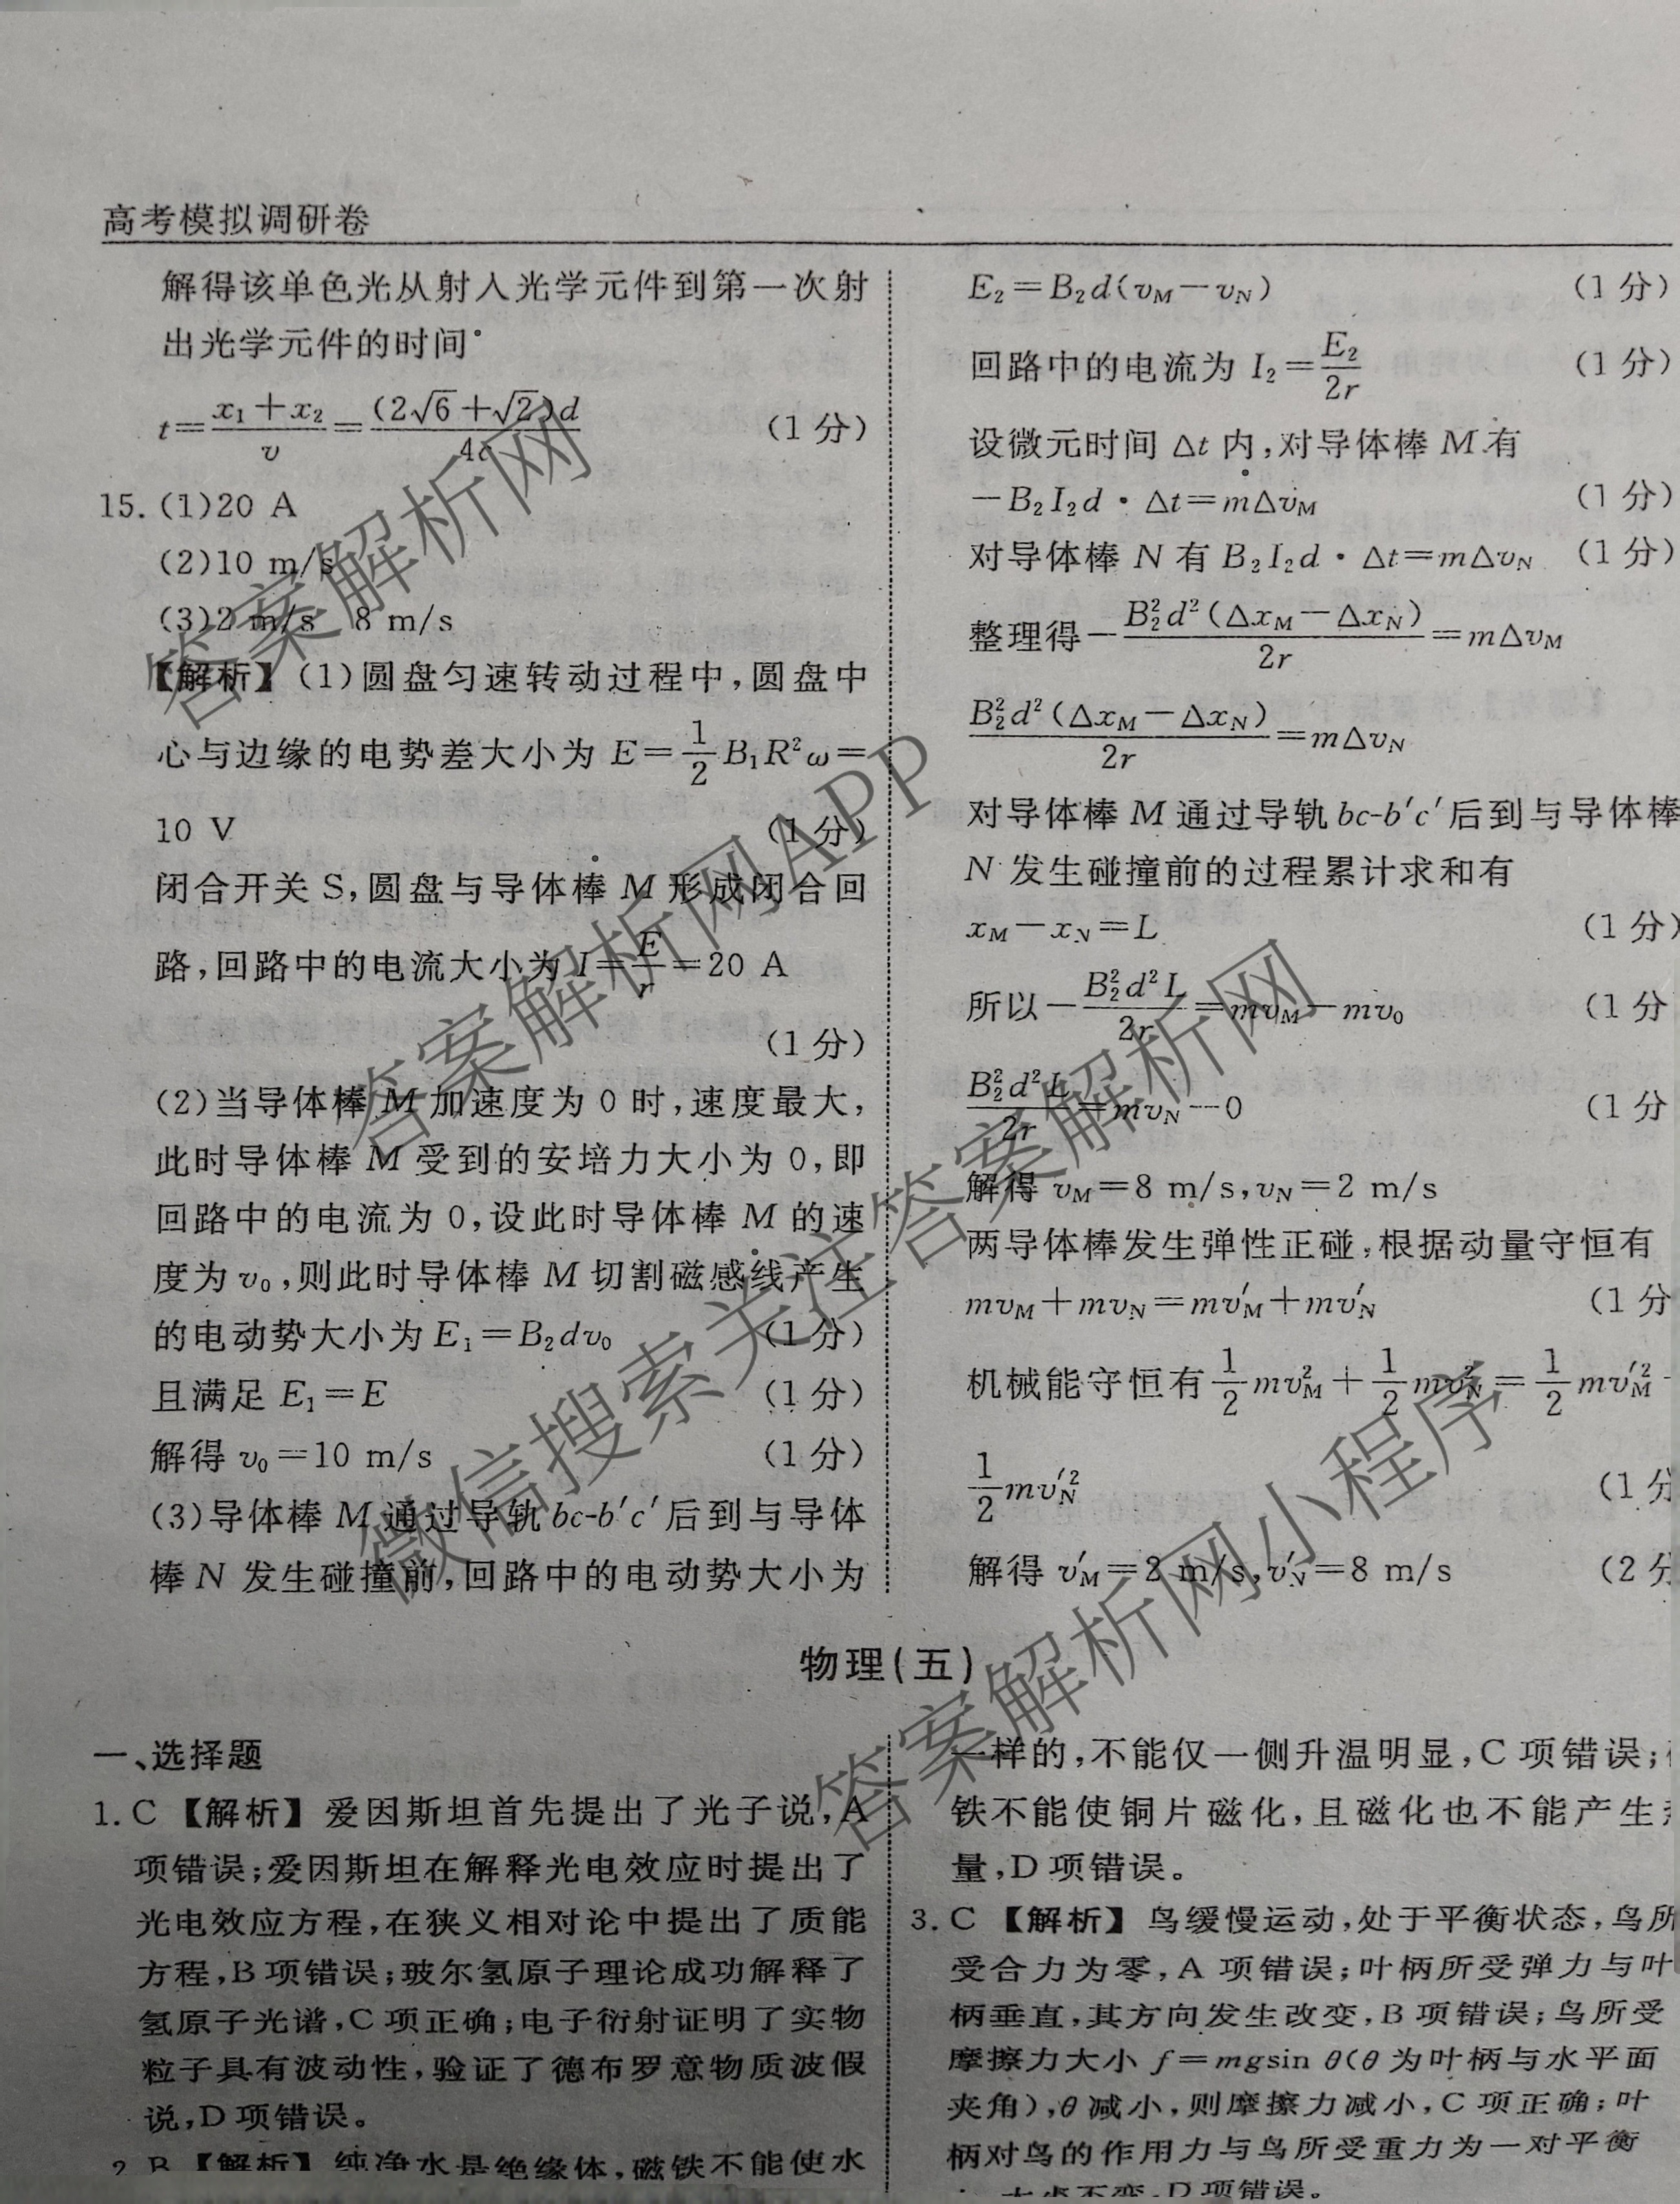 高考模拟调研卷
解得该单色光从射入光学元件到第一次射
出光学元件的时间
t=\frac{x₁+x₂}{v}=\frac{(2√6+√2)d}{4c} (1分)
15. (1)20 A
(2)10 m/s
(3)2 m/s 8 m/s
【解析】(1)圆盘匀速转动过程中,圆盘中
心与边缘的电势差大小为 E=\frac{1}{2}B₁R²ω=
10 V (1分)
闭合开关 S,圆盘与导体棒 M 形成闭合回
路,回路中的电流大小为 I=\frac{E}{r}=20 A
(1分)
(2)当导体棒 M 加速度为 0 时,速度最大,
此时导体棒 M 受到的安培力大小为 0,即
回路中的电流为 0,设此时导体棒 M 的速
度为 v₀,则此时导体棒 M 切割磁感线产生
的电动势大小为 E₁=B₂dv₀ (1分)
且满足 E₁=E (1分)
解得 v₀=10 m/s (1分)
(3)导体棒 M 通过导轨 bc-b′c′后到与导体
棒 N 发生碰撞前,回路中的电动势大小为
E₂=B₂d(v_M-v_N) (1分)
回路中的电流为 I₂=\frac{E₂}{2r} (1分)
设微元时间 Δt 内,对导体棒 M 有
-B₂I₂d·Δt=mΔv_M (1分)
对导体棒 N 有 B₂I₂d·Δt=mΔv_N (1分)
整理得-\frac{B₂²d²(Δx_M-Δx_N)}{2r}=mΔv_M
\frac{B₂²d²(Δx_M-Δx_N)}{2r}=mΔv_N
对导体棒 M 通过导轨 bc-b′c′后到与导体棒
N 发生碰撞前的过程累计求和有
x_M-x_N=L (1分)
所以-\frac{B₂²d²L}{2r}=mv_M-mv₀ (1分
\frac{B₂²d²L}{2r}=mv_N-0 (1分
解得 v_M=8 m/s,v_N=2 m/s
两导体棒发生弹性正碰,根据动量守恒有
mv_M+mv_N=mv′_M+mv′_N (1分
机械能守恒有\frac{1}{2}mv_M²+\frac{1}{2}mv_N²=\frac{1}{2}mv′_M²+
\frac{1}{2}mv′_N² (1分
解得 v′_M=2 m/s,v′_N=8 m/s (2分
物理(五)
一、选择题
1. C 【解析】爱因斯坦首先提出了光子说,A
项错误;爱因斯坦在解释光电效应时提出了
光电效应方程,在狭义相对论中提出了质能
方程,B 项错误;玻尔氢原子理论成功解释了
氢原子光谱,C 项正确;电子衍射证明了实物
粒子具有波动性,验证了德布罗意物质波假
说,D 项错误。
2. B 【解析】纯净水是绝缘体,磁铁不能使水
一样的,不能仅一侧升温明显,C 项错误;
铁不能使铜片磁化,且磁化也不能产生
量,D 项错误。
3. C 【解析】鸟缓慢运动,处于平衡状态,鸟所
受合力为零,A 项错误;叶柄所受弹力与叶
柄垂直,其方向发生改变,B 项错误;鸟所受
摩擦力大小 f=mgsin θ(θ 为叶柄与水平面
夹角),θ 减小,则摩擦力减小,C 项正确;叶
柄对鸟的作用力与鸟所受重力为一对平衡
大小不变,D 项错误。
答案解析网
答案解析网APP
微信搜索关注答案解析网
答案解析网小程序